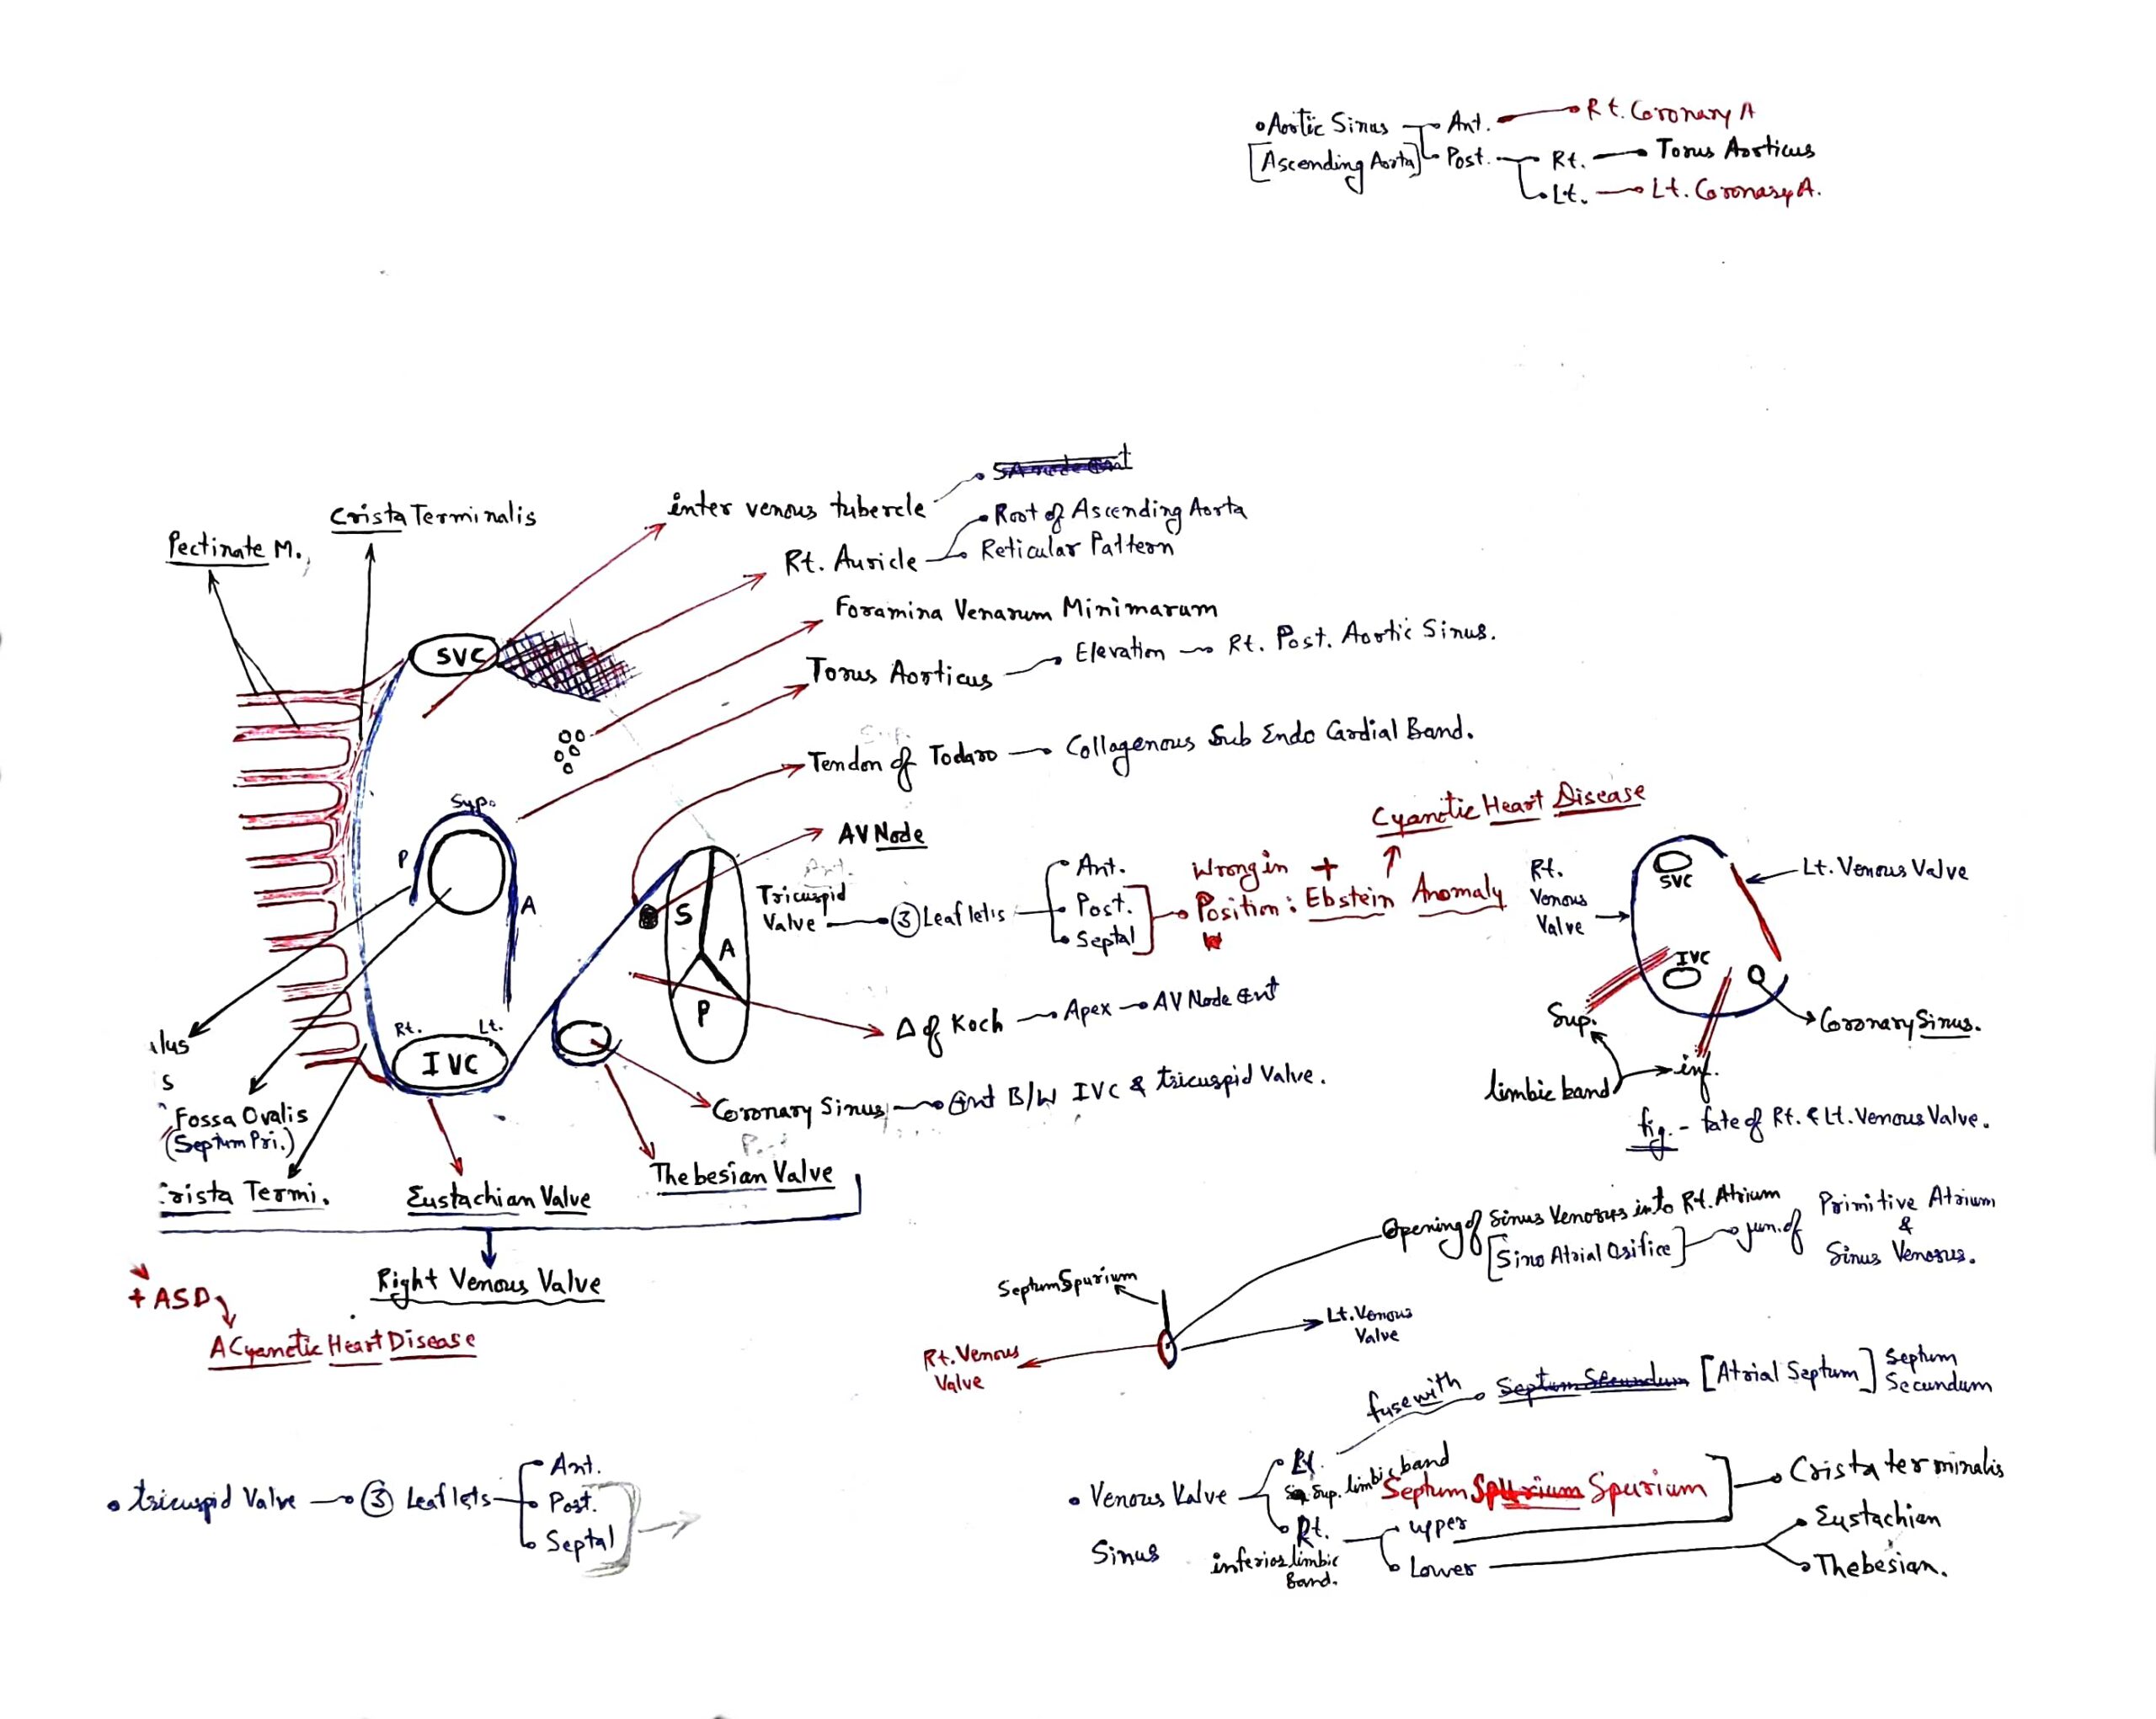 •Aortic Sinus → Ant. → Rt. Coronary A
[Ascending Aorta] → Post. → Rt. → Torus Aorticus
Lt. → Lt. Coronary A.
inter venous tubercle
Crista Terminalis
Pectinate M.,
Rt. Auricle
Root of Ascending Aorta
Reticular Pattern
Foramina Venarum Minimarum
SVC
Torus Aorticus → Elevation → Rt. Post. Aortic Sinus.
Sup.
Tendon of Todaro → Collagenous Sub Endo Cardial Band.
Sup.
P
A
AV Node
Cyanotic Heart Disease
Ant.
Tricuspid
Valve → ③ Leaflets
Ant.
Post.
Septal
Wrong in +
Position : Ebstein Anomaly
S
A
P
Rt.
Venous
Valve
SVC
Lt. Venous Valve
IVC
Sup.
Coronary Sinus.
limbic band
inf.
fig. - fate of Rt. & Lt. Venous Valve.
Δ of Koch → Apex → AV Node
Rt. Lt.
IVC
Coronary Sinus → B/W IVC & tricuspid Valve.
lus
s
Fossa Ovalis
(Septum Pri.)
rista Termi.
Eustachian Valve
Thebesian Valve
Right Venous Valve
+ ASD
ACyanotic Heart Disease
Opening of Sinus Venosus into Rt. Atrium
[Sino Atrial Orifice] → jun. of
Primitive Atrium
&
Sinus Venosus.
Septum Spurium
Lt. Venous
Valve
Rt. Venous
Valve
fuse with Septum Secundum [Atrial Septum] Septum
Secundum
• tricuspid Valve → ③ Leaflets
Ant.
Post.
Septal
• Venous Valve
Sinus
Sup. limbic band
Septum Spurium Spurium
Crista terminalis
Rt.
inferior limbic
Band.
upper
Lower
Eustachian
Thebesian.